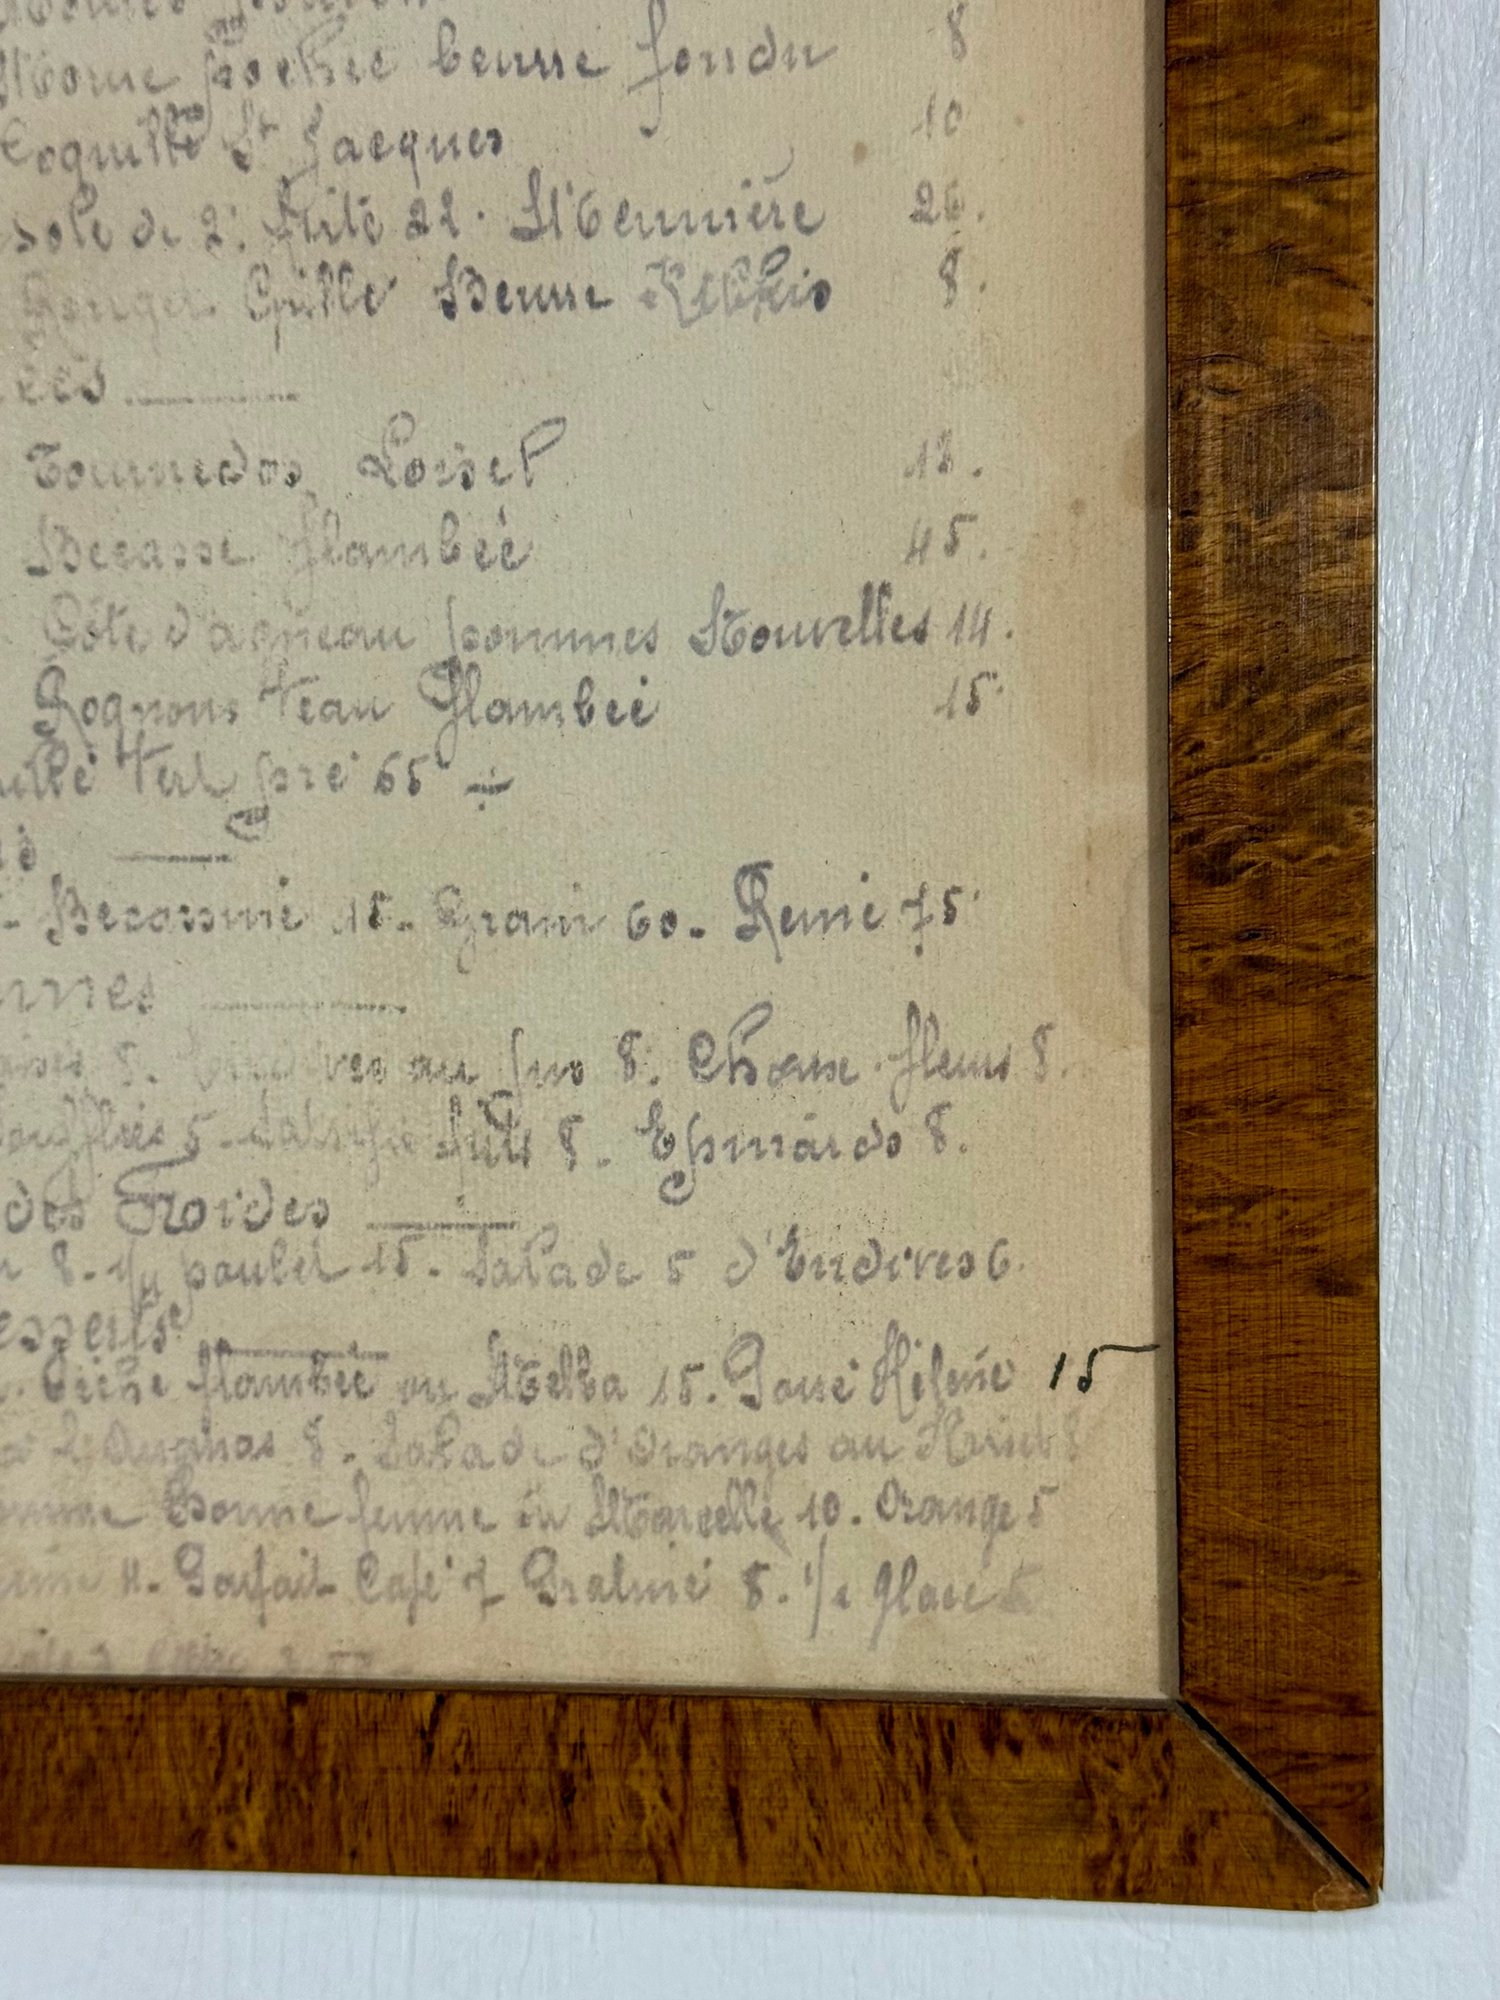 pochée beurre fondu 8
Coquille St Jacques 10
Sole de 2. frite 22. Meunière 26.
Rouget Grillé Beurre 8.
ées
Tournedos Loisel 18.
Becasse flambée 45.
Côte d'agneau pommes Nouvelles 14.
Rognons Veau Flambée 15.
Vert pré 65
- Becassine 15 - Grain 60 - Reine 75
8. au jus 8. Choux-fleurs 8.
oufflées 5 - Salsifis frits 8 - Epinards 8.
des Froides
8 - 1/4 poulet 15 - Salade 5 d'Endives 6.
esserts
Pêche flambée ou Melba 15. Poire Hélène 15
Ananas 8 - Salade d'Oranges au Kirsch 8
Bonne femme ou Marcelle 10. Orange 5
Parfait Café 7 Praliné 8. 1/2 glace 5